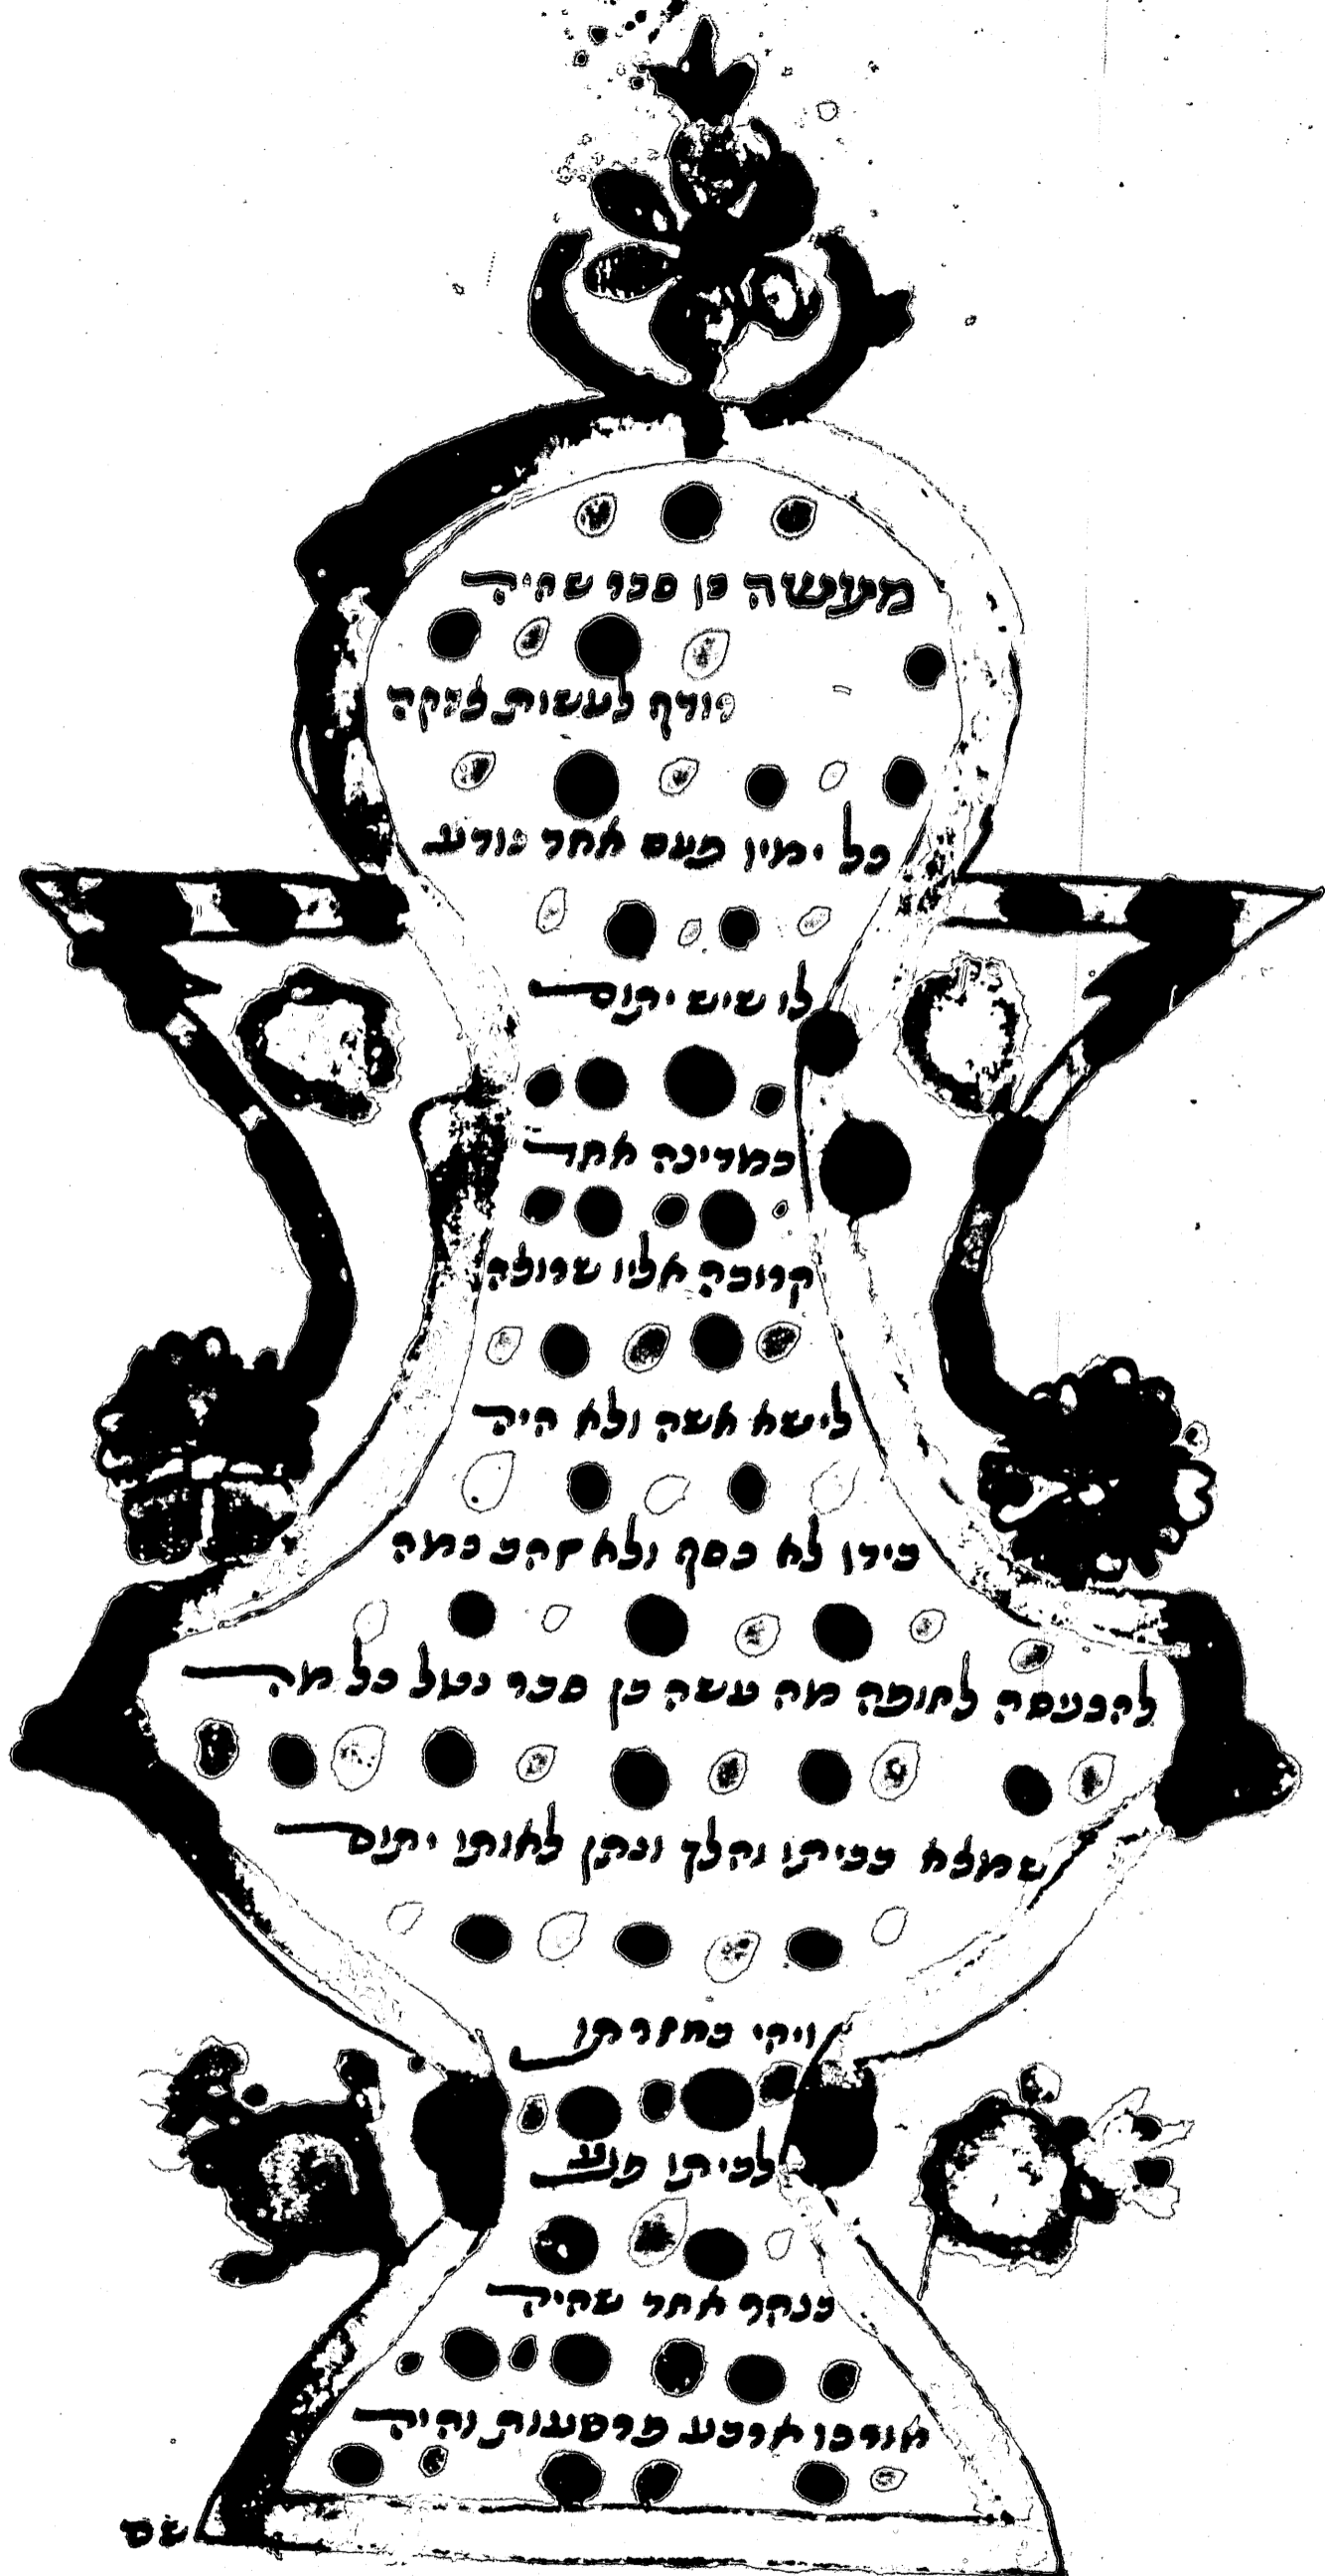 מעשה בן סבר שהיה
רודף לעשות צדקה
כל ימיו פעם אחד נודע
לו שיש יתום
במדינה אחד
קרובה אליו שרוצה
לישא אשה ולא היה
בידו לא כסף ולא זהב במה
להכניסה לחופה מה עשה בן סבר נטל כל מה
שמצא בביתו והלך ונתן לאותו יתום
ויהי בחזרתו
לביתו פגע
בנהר אחד שהיה
אורכו ארבע פרסאות והיה
שם